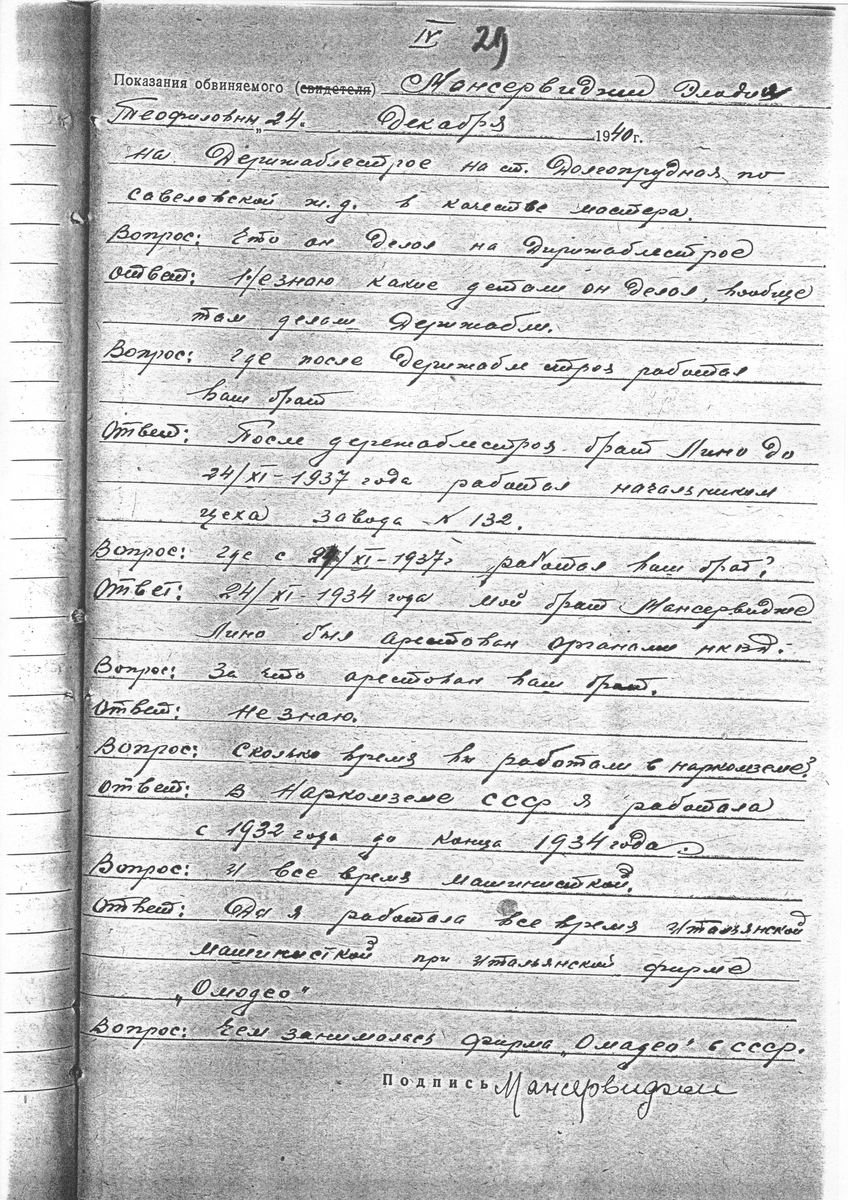 IV 29
Показания обвиняемого (свидетеля) Мансервиджи
Теофиловны „24. Декабря 1940 г.
на Держаблестрое на ст. Долгопрудная по
савеловской ж.д. в качестве мастера.
Вопрос: Что он делал на Дирижаблестрое
Ответ: Незнаю какие детали он делал, вообще
там делали Держабли.
Вопрос: Где после Держаблестроя работал
ваш брат
Ответ: После держаблестроя брат Лино до
24/XI-1937 года работал начальником
цеха завода N 132.
Вопрос: Где с 24/XI-1937г работал ваш брат?
Ответ: 24/XI-1934 года мой брат Мансервидже
Лино был арестован органами НКВД.
Вопрос: За что арестован ваш брат.
Ответ: Не знаю.
Вопрос: Сколько время вы работали в наркомземе?
Ответ: В Наркомземе СССР я работала
с 1932 года до конца 1934 года.
Вопрос: И все время машинисткой.
Ответ: Да я работала все время Итальянской
машинисткой при Итальянской фирме
„Омодео"
Вопрос: Чем занималась фирма „Омадео" в СССР.
Подпись Мансервиджи